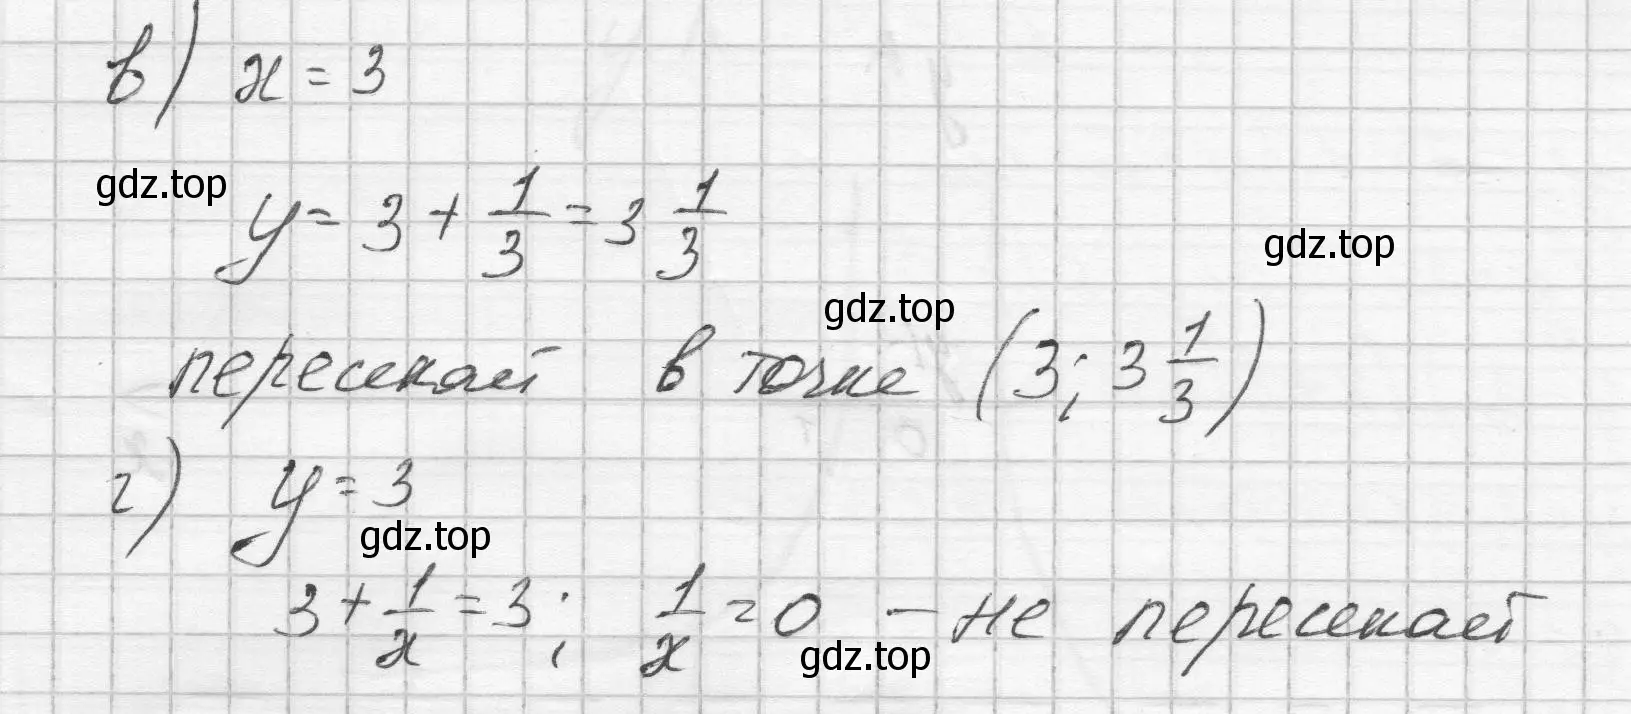 в) x = 3
gdz.top
y = 3 + 1/3 = 3 1/3
gdz.top
gdz.top
пересекает в точке (3; 3 1/3)
г) y = 3
gdz.top
3 + 1/x = 3; 1/x = 0 — не пересекает
gdz.top